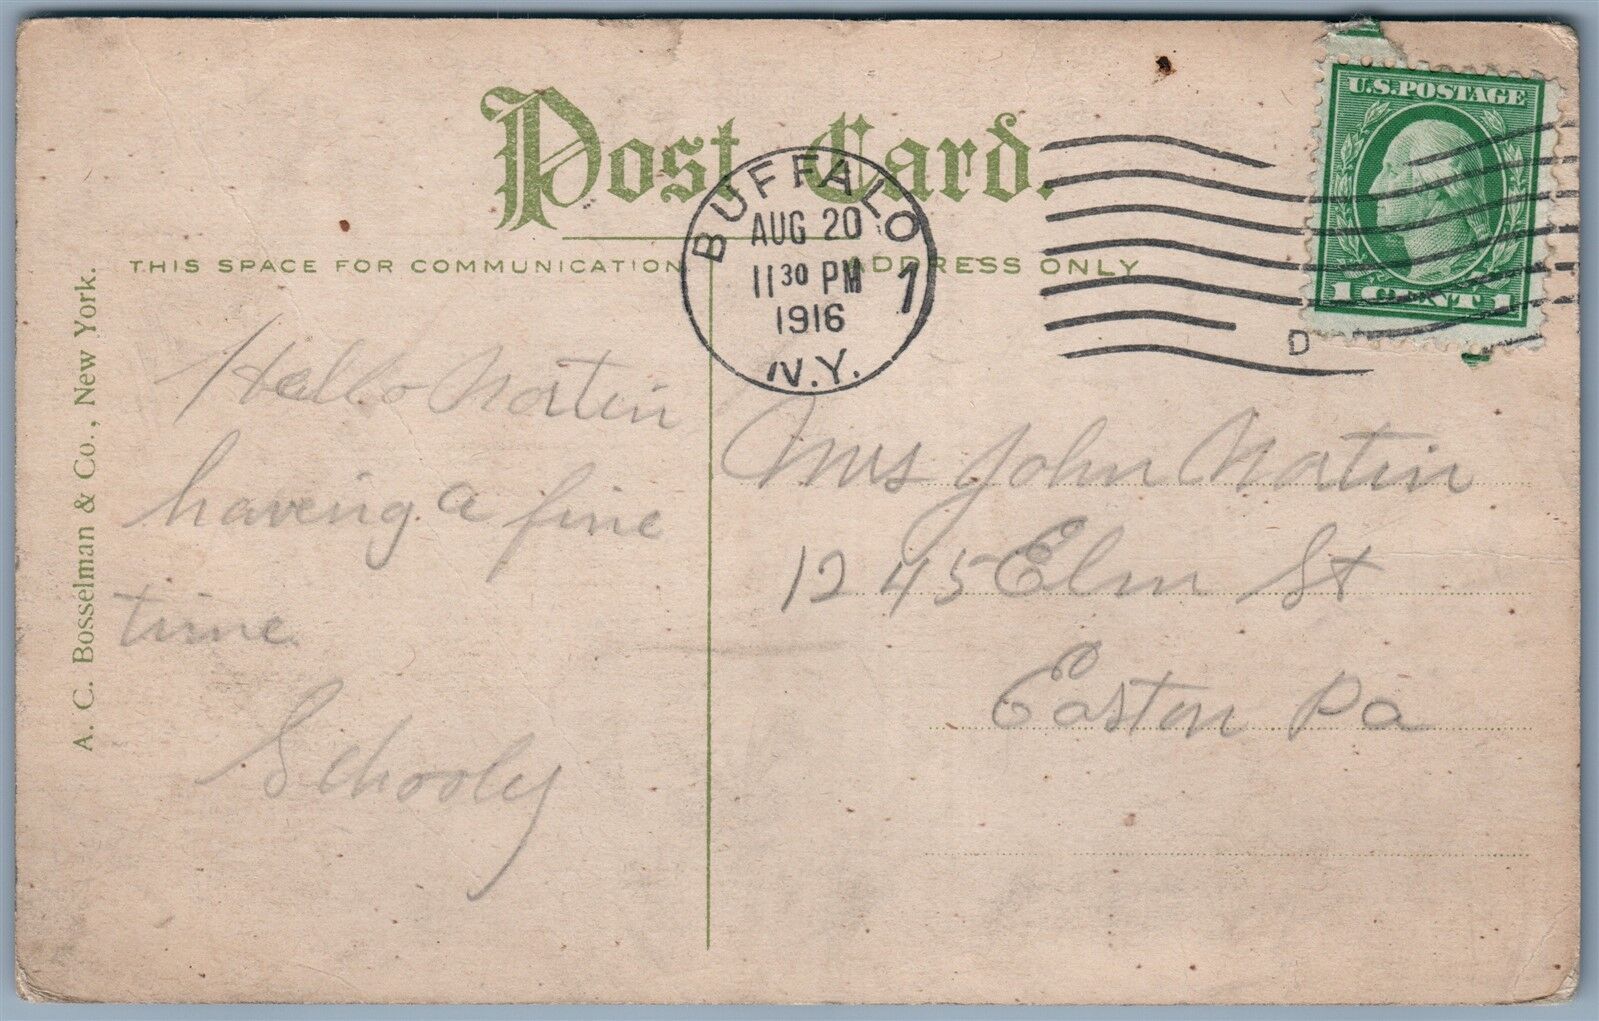 Post Card.
THIS SPACE FOR COMMUNICATION
ADDRESS ONLY
BUFFALO
AUG 20
11 30 PM
1916
N.Y.
1
D
U.S.POSTAGE
1 CENT 1
A. C. Bosselman & Co., New York.
Hello Martin
having a fine
time
Schooly
Mrs John Martin
1245 Elm St
Easton Pa